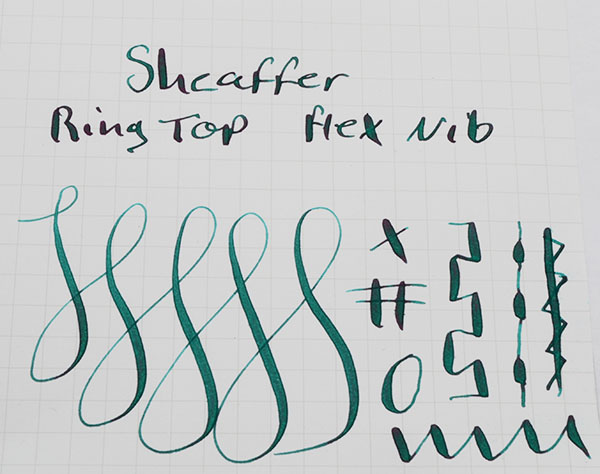 Sheaffer
Ring Top flex Nib